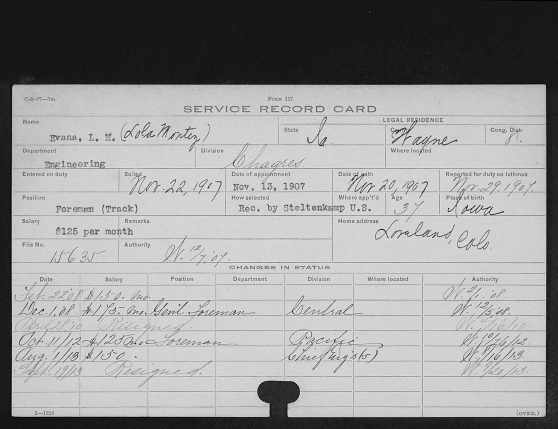 Form 117
SERVICE RECORD CARD
Name
Evans, L. M. (Lola Montez)
State
Ia
LEGAL RESIDENCE
Wayne
Cong. Dist.
8.
Department
Engineering
Division
Chagres
Where located
Entered on duty
Sailed
Nov. 22, 1907
Date of appointment
Nov. 13, 1907
Date of oath
Nov 20, 1907
Reported for duty on Isthmus
Nov. 29, 1907.
Position
Foreman (Track)
How selected
Rec. by Steltenkamp U.S.
Where app't'd
Age
37
Place of birth
Iowa
Salary
$125 per month
Remarks
Home address
Loveland, Colo.
File No.
15635
Authority
W. 12/7/07.
CHANGES IN STATUS
Date Salary Position Department Division Where located Authority
Feb. 22.08 $150. mo.
Dec 1.08 $175. mo. Genl. Foreman Central W. 12/5/08.
Resigned
Oct. 11/12 $125 mo Foreman Pacific
Aug. 1/13 $150. W. 8/16/13
Resigned.
(OVER.)